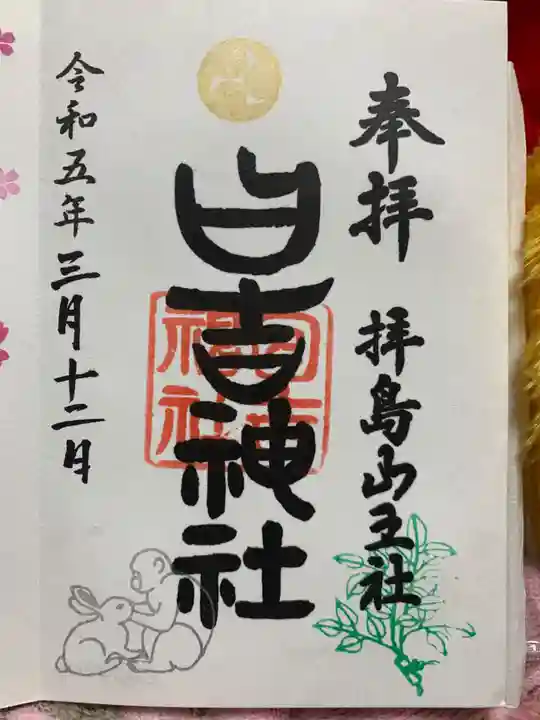 奉拝 拝島山王社
日吉神社
日吉神社
令和五年三月十二日